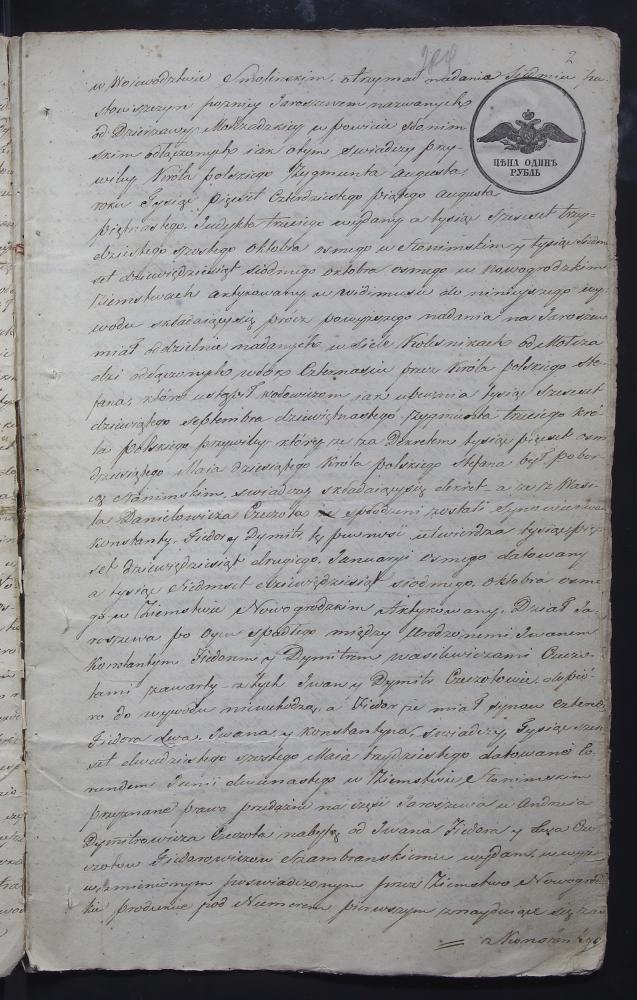 2
w Wojewodztwie Smolinskim, otrzymał nadania Siedmiu pu-
stowszczyn pozniey Jaroszewem nazwanych
od Dzierżawy Mołczadzkiey w powiecie Słonim
skim odłączonych iak otym swiadczy przy-
wiley Krola polskiego Zygmunta Augusta
roku Tysiąc pięcset Czterdziestego piątego Augusta
ЦѢНА ОДИНЪ
РУБЛЬ
piętnastego, Indykta trzeciego wydany a tysiąc szescset trzy-
dziestego szostego Oktobra osmego w Słonimskim y tysiąc siedm
set dziewięcdziesiąt siodmego oktobra osmego w Nowogrodzkim
Ziemstwach aktykowany w widimusie do ninieyszego wy-
wodu składaiący się prócz powyższego nadania na Jaroszew
miał oddzielnie nadanych w siele Kolesnikach od Mołcza
dzi odłączonych włok Czternascie przez Króla polskiego Ste
fana, które ustąpił iak upewnia tysiąc szescset
dziewiątego Septembra dziewiętnastego Zygmunta trzeciego kró
la polskiego przywiley, który że za Dekretem tysiąc pięcset osm
dziesiątego Maia dziesiątego Króla polskiego Stefana był pobor
cą Słonimskim, swiadczy składaiący się dekret, a że z Wasi
la Daniłowicza Czeczota spłodzeni zostali Synowie Iwan
Konstanty, Fiedor y Dymitr, tę pewność utwierdza tysiąc pięc
set dziewięcdziesiąt drugiego, Januaryi osmego datowany
a tysiąc Siedmset dziewięcdziesiąt siodmego, Oktobra osme
go w Ziemstwie Nowogrodzkim Aktykowany, Dział Ja
roszewa po oycu spadłego między Urodzonemi Iwanem
Konstantym Fiedorem y Dymitrem Wasilewiczami Czeczo-
tami zawarty - z tych Iwan y Dymitr Czeczotowie, do
ro do wywodu niewchodzą, a Fiedor, że miał synow czterech,
Fiedora Lwa, Iwana, y Konstantyna, swiadczy, Tysiąc szesc
set dwudziestego szostego Maia trzydziestego datowane Eo
rundem Junii dwunastego w Ziemstwie Słonimskim
przyznane prawo przedażne na częsc Jaroszewa u Andreia
Dymitrowicza Czeczota nabytą od Iwana Fiedora y Lwa Cze
czotow Fiedorowiczow Szambranskiemu wydane, w wyż
wspomnionym poswiadczonym przez Ziemstwo Nowogrodz
kie produkcie pod Numerem pierwszym znayduiące się, zas
z Konstantego